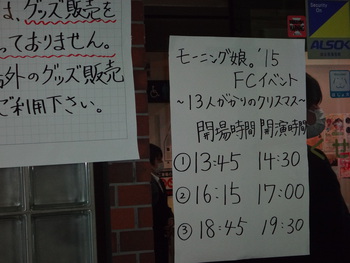 は、グッズ販売を
っておりません。
外のグッズ販売
ご利用下さい。
モーニング娘。'15
FCイベント
~13人がかりのクリスマス~
開場時間 開演時間
① 13:45 14:30
② 16:15 17:00
③ 18:45 19:30
Security
ALSOK